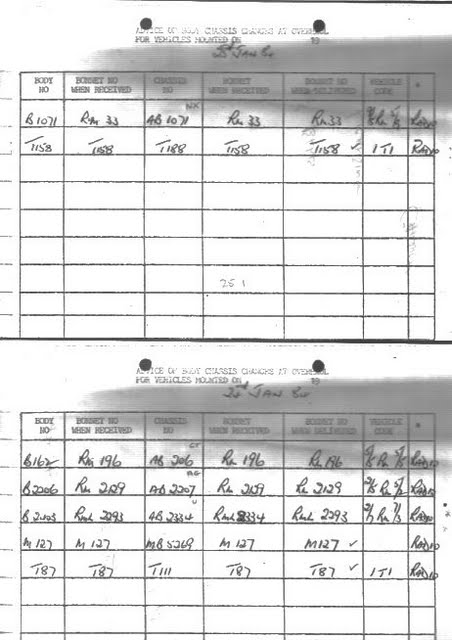 ADVICE OF BODY CHASSIS CHANGES AT OVERHAUL
FOR VEHICLES MOUNTED ON 19
JAN 84
BODY NO BONNET NO WHEN RECEIVED CHASSIS NO BONNET WHEN RECEIVED BONNET NO WHEN DELIVERED VEHICLE CODE
NX
B1071 Rm 33 AB 1071 Rm 33 Rm 33 Radio
T1158 T1158 T1188 T1158 T1158 ✓ 1T1 Radio
25 1
ADVICE OF BODY CHASSIS CHANGES AT OVERHAUL
FOR VEHICLES MOUNTED ON 19
JAN 84
BODY NO BONNET NO WHEN RECEIVED CHASSIS NO BONNET WHEN RECEIVED BONNET NO WHEN DELIVERED VEHICLE CODE
B162 Rm 196 AB 206 Rm 196 Rm 196 Radio
B2206 Rm 2129 AB 2207 Rm 2129 Rm 2129 Radio
Rml 2293 AB 2334 Rml 2293 Radio
M 127 M 127 MB 5269 M 127 M127 ✓ Radio
T87 T87 T111 T87 T87 ✓ 1T1 Radio